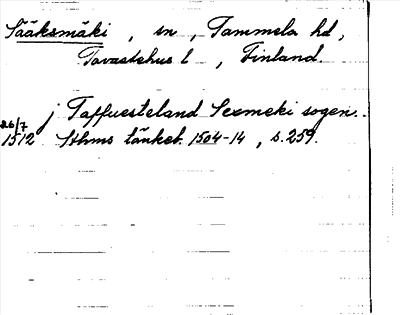 Sääksmäki, sn, Tammela hd,
Tavastehus l, Finland.
j Taffuesteland Sexmeki sogen..
26/7
1512 Sthms tänkeb. 1504-14, s. 259.